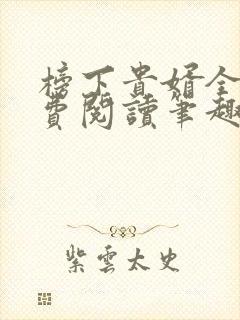 榜下貴婿全
費閱讀筆趣
紫雲太史